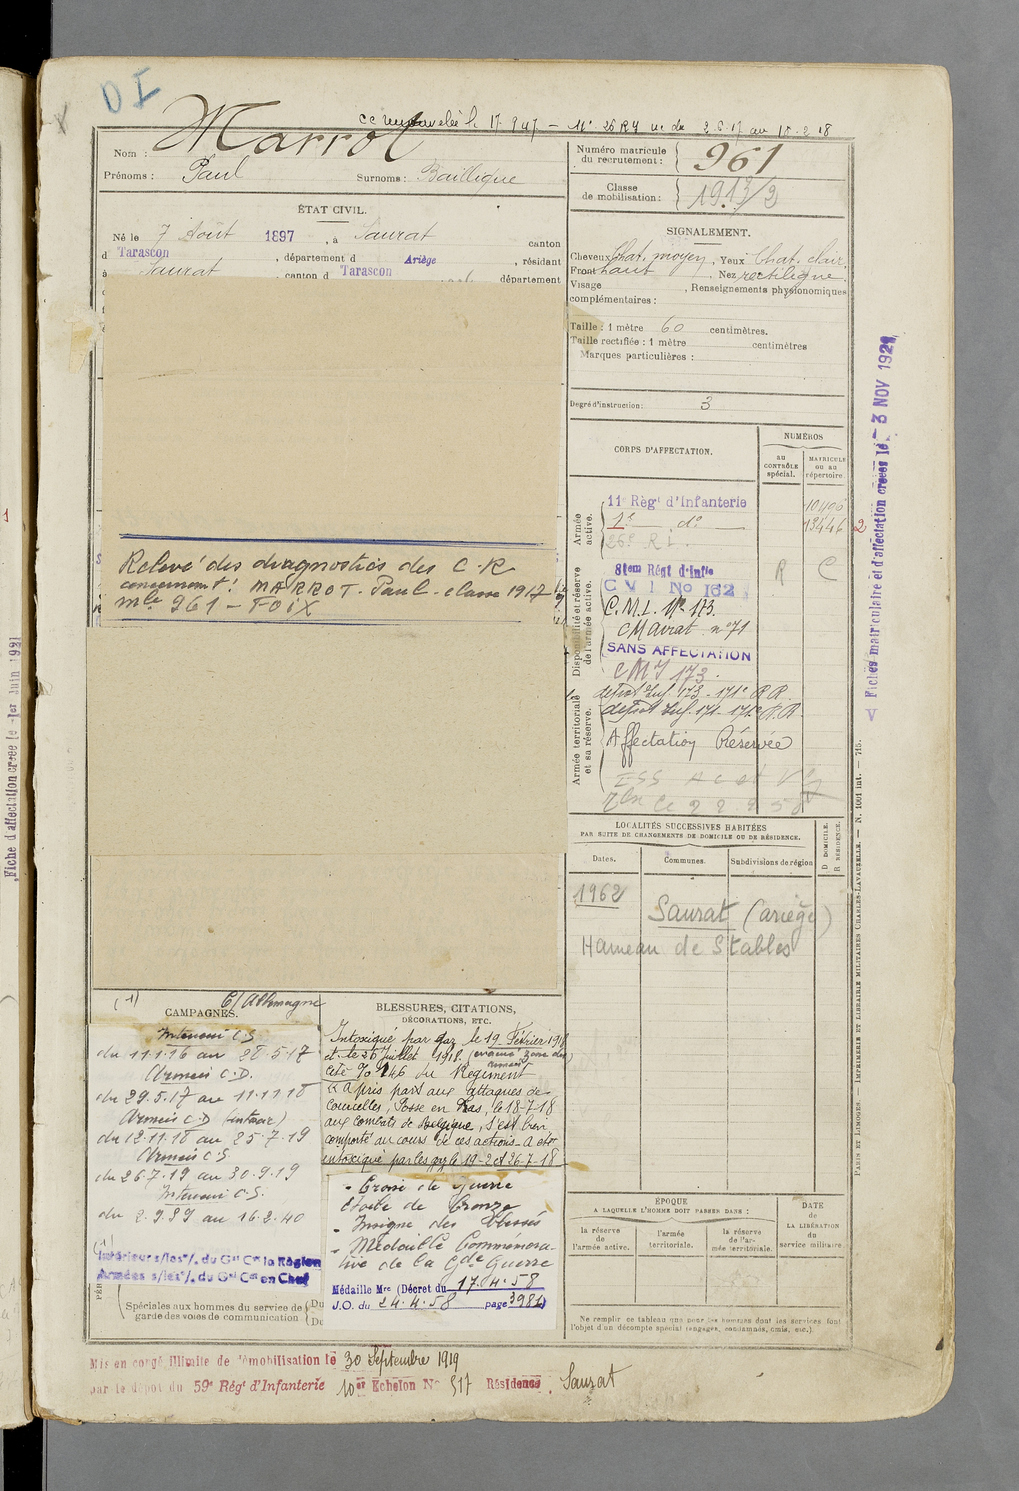 DI
Nom : Marrot
Prénoms : Paul Surnoms : Baillique
ÉTAT CIVIL.
Né le 7 Août 1897, à Saurat canton
d Tarascon, département d Ariège, résidant
à Saurat, canton d Tarascon département
Relevé des diagnostics des C.R
concernant : MARROT. Paul. classe 1917
mle 961 - FOIX
Numéro matricule
du recrutement : 961
Classe
de mobilisation : 1913/2
SIGNALEMENT.
Cheveux Chat. moyen, Yeux Chat. clair.
Front haut, Nez rectiligne.
Visage , Renseignements physionomiques
complémentaires :
Taille : 1 mètre 60 centimètres.
Taille rectifiée : 1 mètre centimètres
Marques particulières :
Degré d'instruction : 3
CORPS D'AFFECTATION.
NUMÉROS
AU
CONTRÔLE
spécial.
MATRICULE
ou au
répertoire.
Armée
active.
11e Régt d'Infanterie
1er do
26e R.I.
13446
2
Disponibilité et réserve
de l'armée active.
8tem Régt d'infie R C
C V I No 162
C.M.I. No 173
CM Avrat no 71
SANS AFFECTATION
CMI 173.
Armée territoriale
et sa réserve.
depot Inf. 173 - 171e R.R.
depot Inf. 171 - 171e R.R.
Affectation Réservée
LOCALITÉS SUCCESSIVES HABITÉES
PAR SUITE DE CHANGEMENTS DE DOMICILE OU DE RÉSIDENCE.
Dates. Communes. Subdivisions de région
D DOMICILE.
R RÉSIDENCE.
1962
Saurat (Ariège)
Hameau de Stables
ÉPOQUE
A LAQUELLE L'HOMME DOIT PASSER DANS :
la réserve
de
l'armée active.
l'armée
territoriale.
la réserve
de l'ar-
mée territoriale.
DATE
de
LA LIBÉRATION
du
service militaire.
Ne remplir ce tableau que pour les hommes dont les services font
l'objet d'un décompte spécial (engagés, condamnés, omis, etc.).
(1) C/ Allemagne
CAMPAGNES.
Intérieur C.S
du 11.1.16 au 28.5.17
Armées C.D.
du 29.5.17 au 11.11.18
Armées C.D (intérieur)
du 12.11.18 au 25.7.19
Armées C.S
du 26.7.19 au 30.9.19
Intérieur C.S.
du 2.9.39 au 16.2.40
(1)
Intérieur s/les o/. du Gal Ct la Région
Armées s/les o/. du Gal Ct en Chef
Spéciales aux hommes du service de
garde des voies de communication
Du
Du
BLESSURES, CITATIONS,
DÉCORATIONS, ETC.
Intoxiqué par gaz le 19 Février 1918
et le 26 Juillet 1918. (évacué zone des
armées)
Cité % 146 du Régiment
A pris part aux attaques de
Courcelles, Fosse en Bas, le 18-7-18
aux combats de Belgique, s'est bien
comporté au cours de ces actions - A été
intoxiqué par les gaz le 19-2 et 26-7-18
- Croix de guerre
Etoile de Bronze
- Insigne des Blessés
- Médaille Commémora-
tive de la Gde Guerre
Médaille Mre (Décret du 17.4.58
J.O. du 24.4.58 page 3981)
Mis en congé illimité de démobilisation le 30 Septembre 1919
par le dépôt du 59e Régt d'Infanterie 10er Echelon No 517 Résidence, Saurat
Fiche d'affectation créée le 1er Juin 1921
V Fiches matriculaire et d'affectation créées le 3 NOV 1921
PARIS ET LIMOGES. — IMPRIMERIE ET LIBRAIRIE MILITAIRES CHARLES-LAVAUZELLE. — N. 1001 int. — 715.